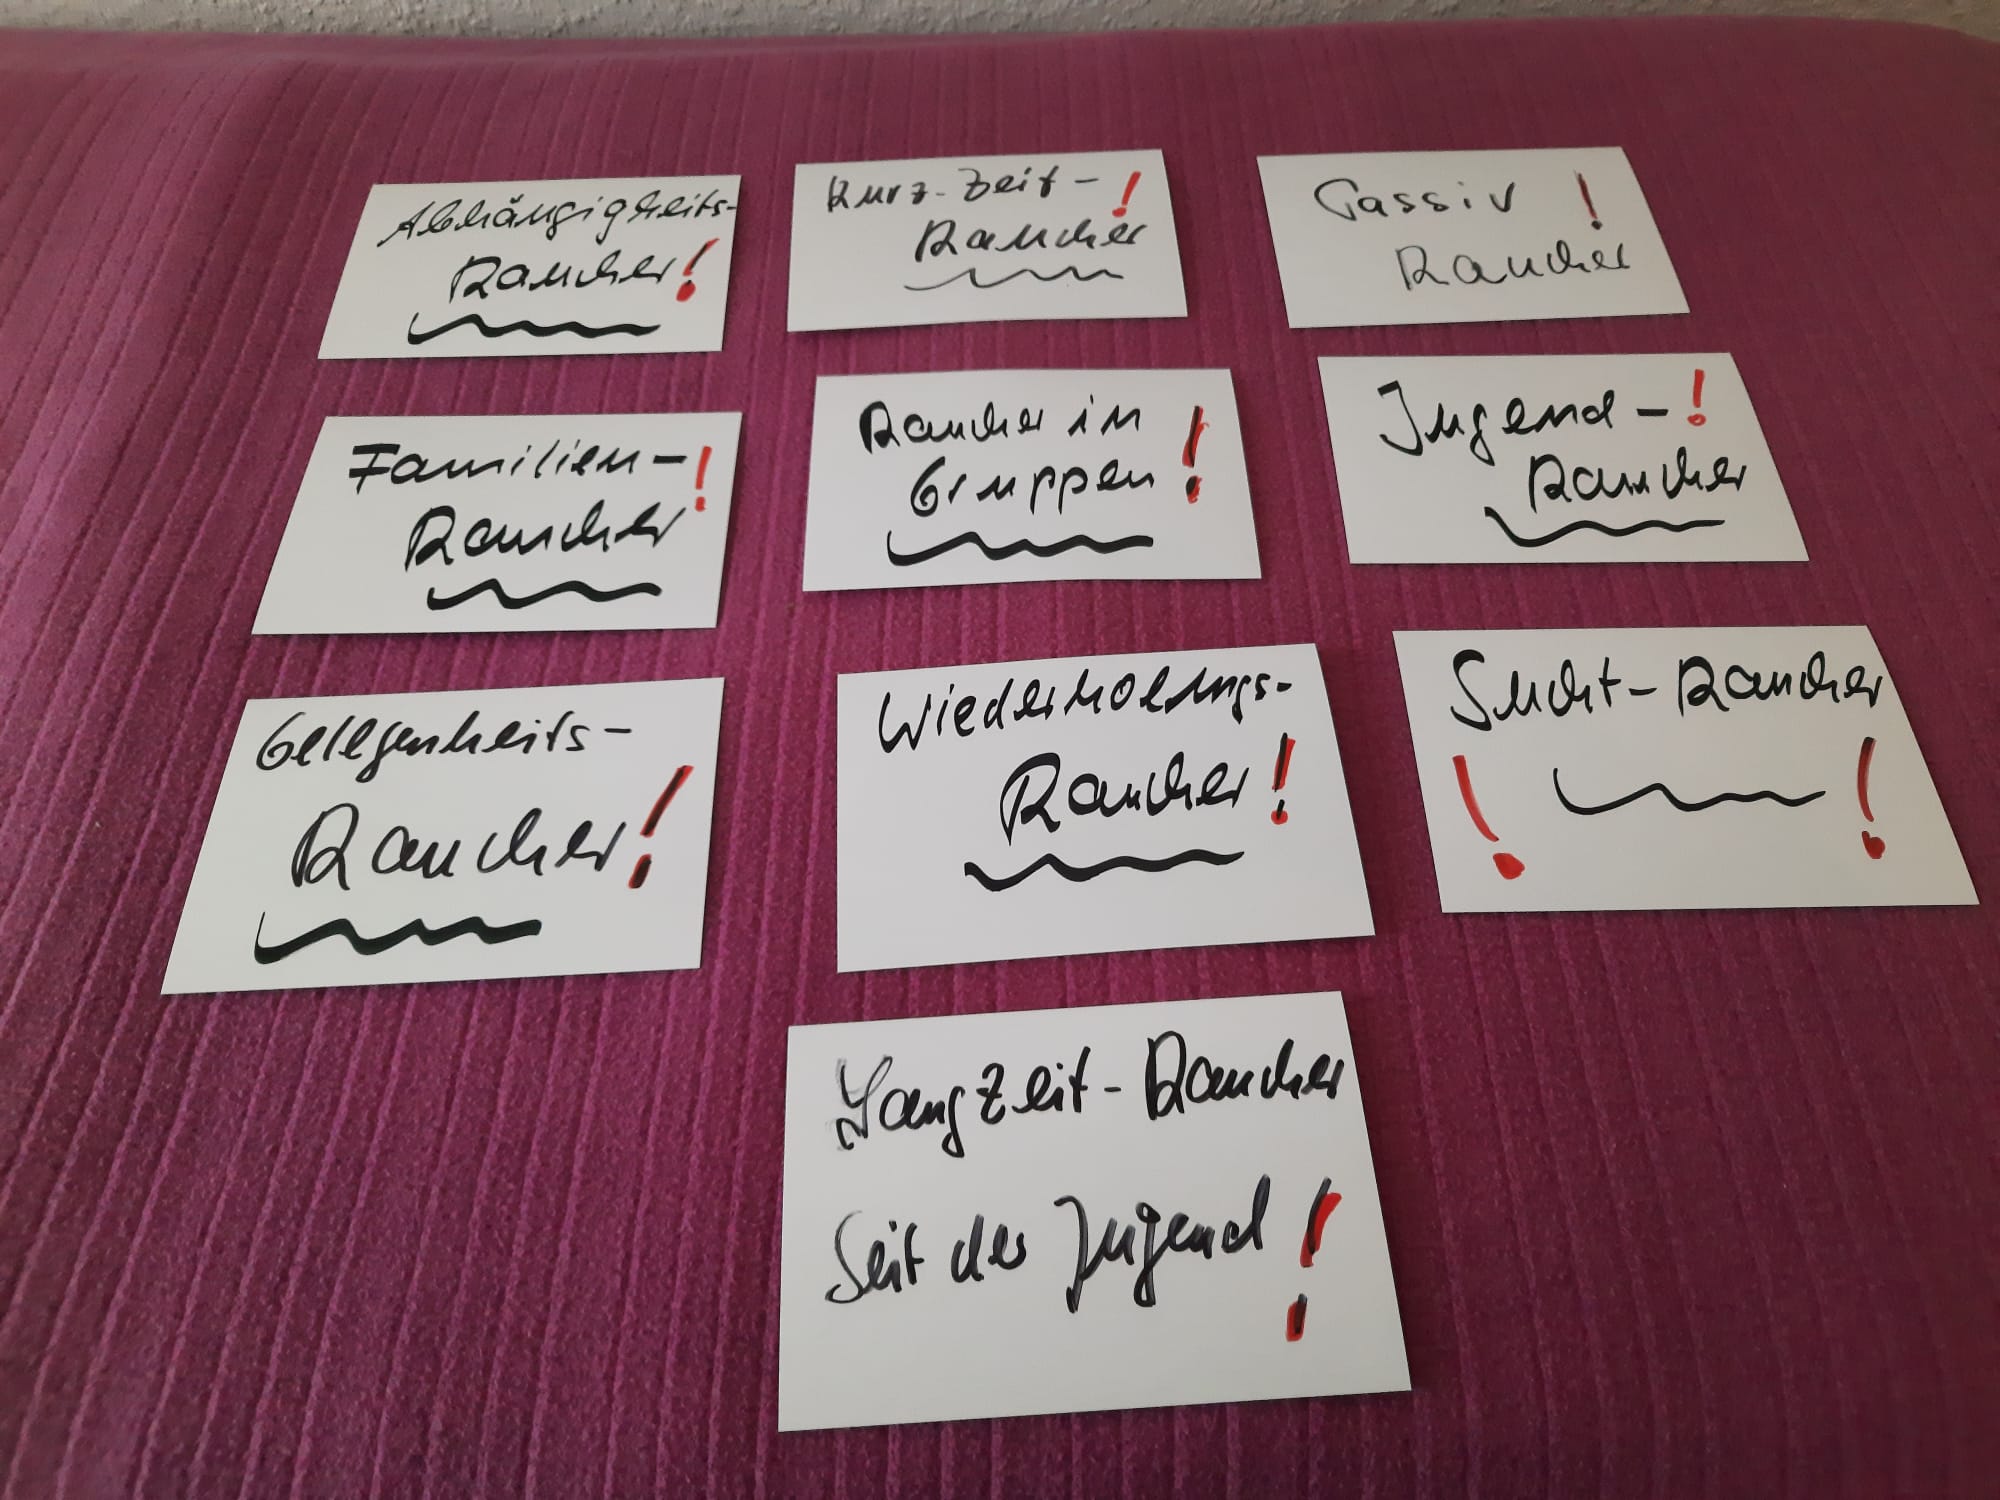 Abhängigkeits-
Raucher!
Kurz-Zeit-!
Raucher
Passiv !
Raucher
Familien-!
Raucher
Raucher in
Gruppen!
Jugend-!
Raucher
Gelegenheits-
Raucher!
Wiederholungs-
Raucher!
Sucht-Raucher
! !
Langzeit-Raucher
Seit der Jugend!